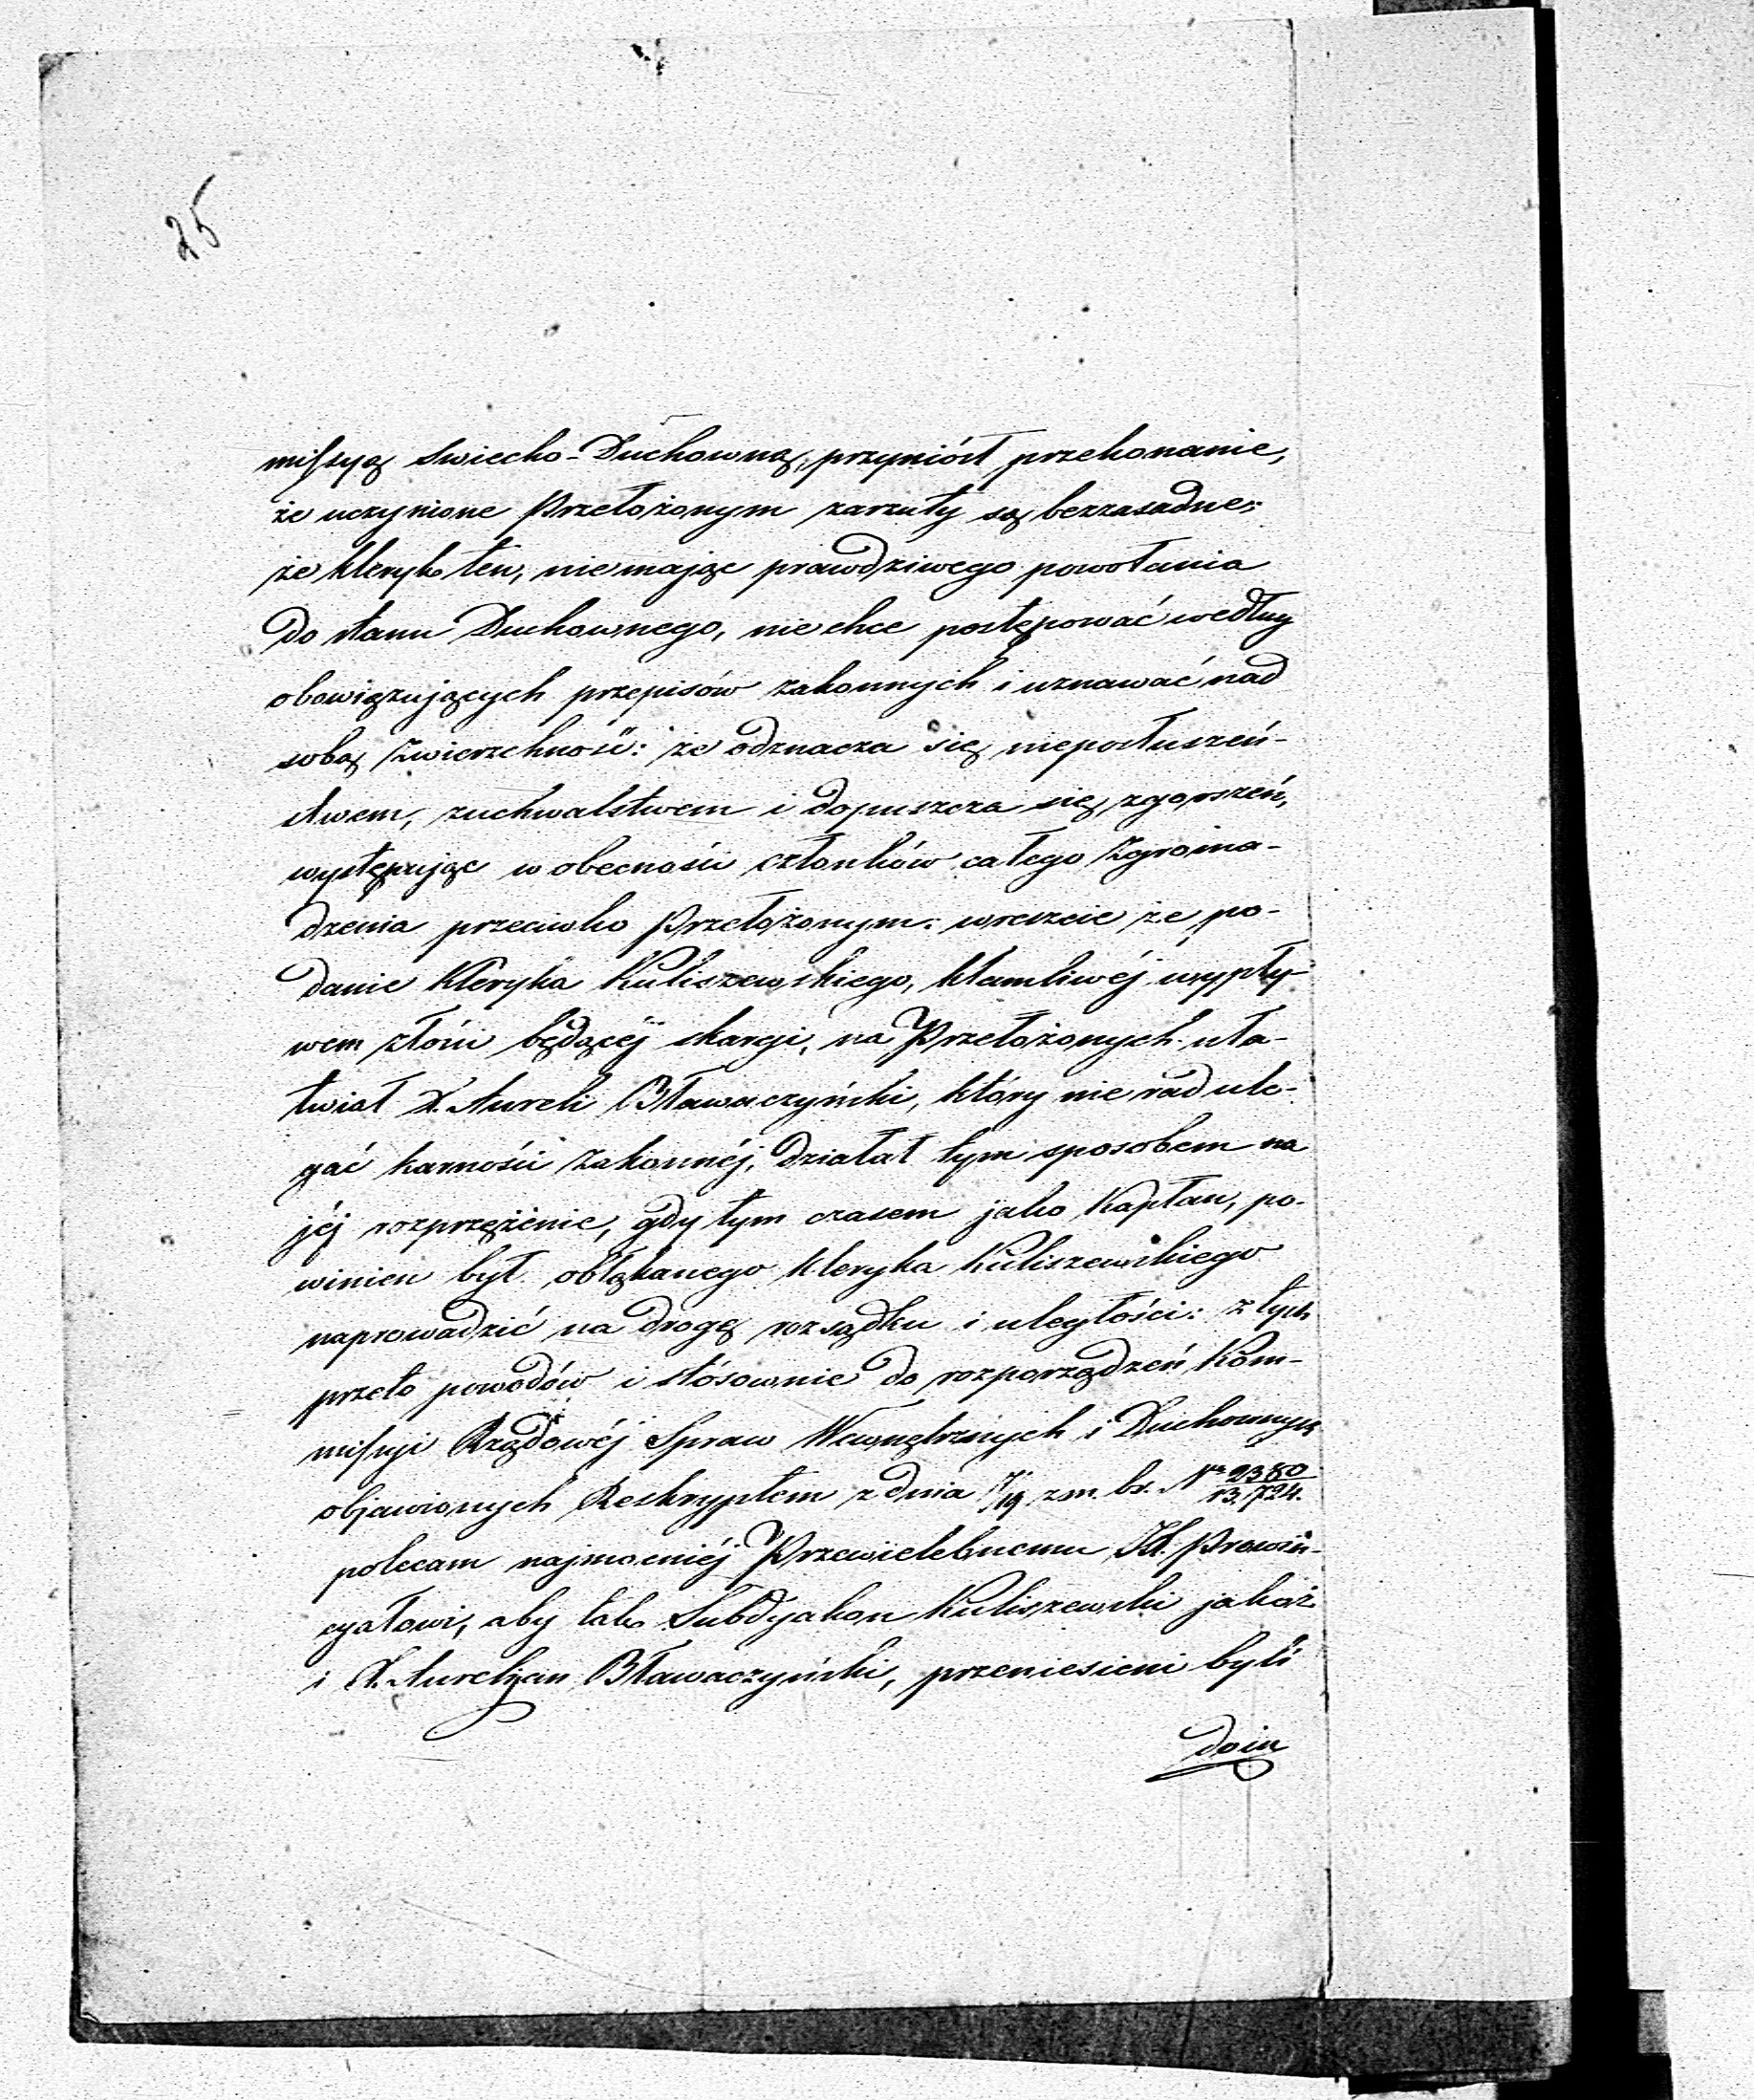 25
missyą Swiecko-Duchowną, przyniósł przekonanie,
że uczynione Przełożonym zarzuty są bezzasadne;
że kleryk ten, nie mając prawdziwego powołania
do stanu Duchownego, nie chce postępować według
obowiązujących przepisów zakonnych i uznawać nad
sobą Zwierzchność: że odznacza się nieposłuszeń-
stwem, zuchwalstwem i dopuszcza się zgorszeń,
występując w obecności członków całego Zgroma-
dzenia przeciwko Przełożonym: wreszcie że po-
danie Kleryka Kuliszewskiego, kłamliwéj wypły-
wem złości będącéj skargi, na Przełożonych uła-
twiał X. Aureli Bławaczyński, który nie rad ule-
gać karności Zakonnéj, działał tym sposobem na
jéj rozprzężenie, gdy tym czasem jako Kapłan, po-
winien był obłąkanego Kleryka Kuliszewskiego
naprowadzić na drogę rozsądku i uległości: z tych
przeto powodów i stósownie do rozporządzeń Kom-
missyi Rządowéj Spraw Wewnętrznych i Duchownych
objawionych Reskryptem z dnia 7/19 z m. br. Nr 2380/13,724.
polecam najmocniéj Przewielebnemu JX. Prowin-
cyałowi, aby tak Subdyakon Kuliszewski jakoż
i X. Aureljan Bławaczyński, przeniesieni byli
do in